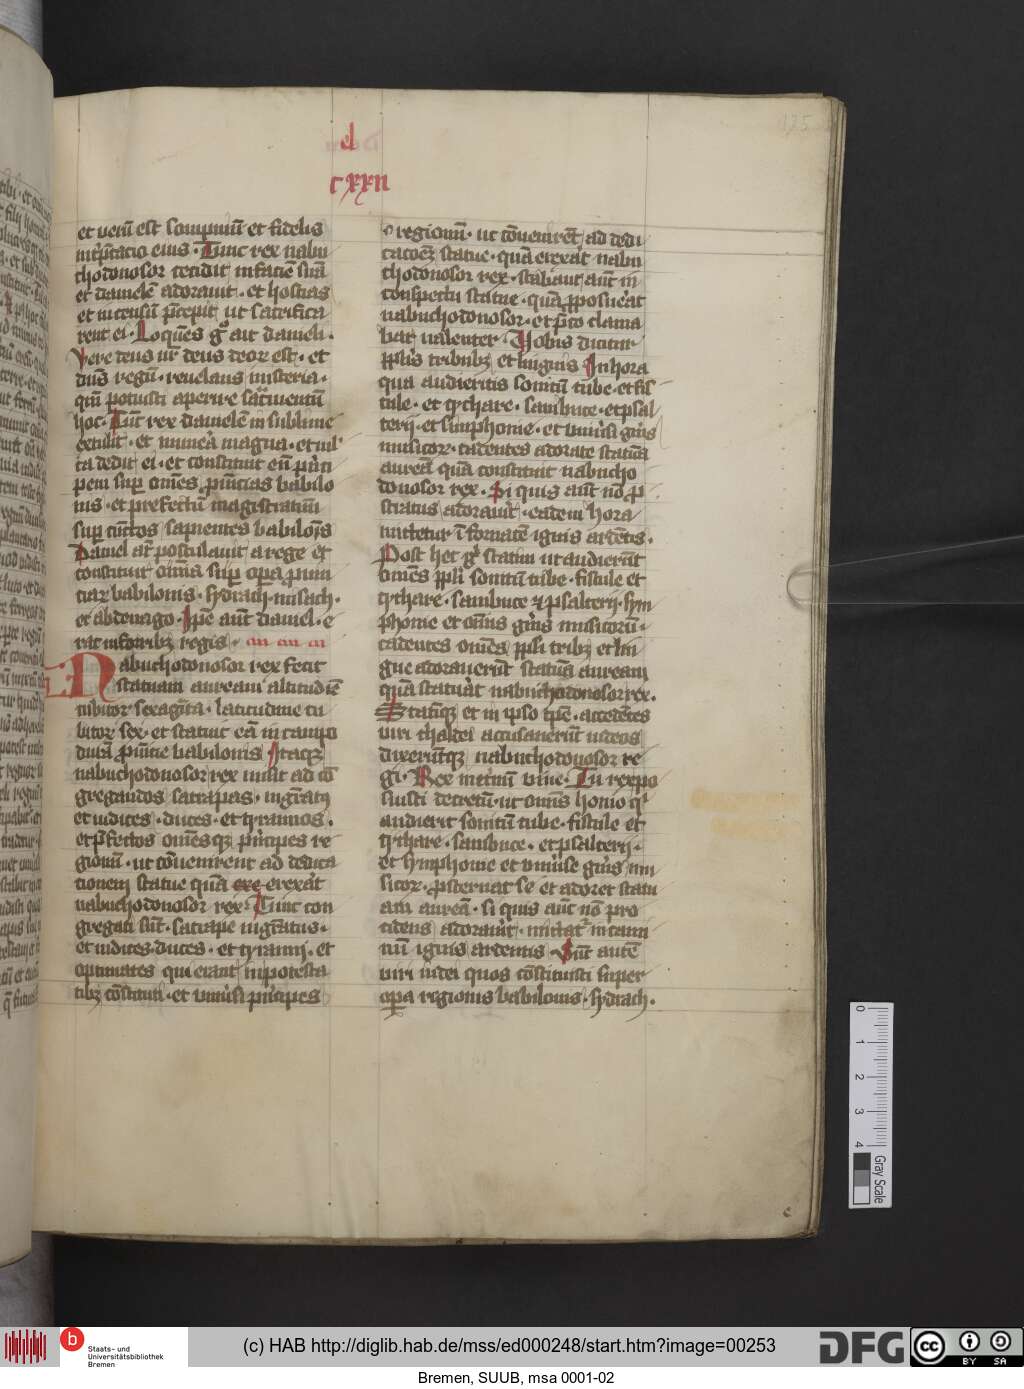 125
el
cxxii
et verũ est sompniũ et fidelis
int̃p̃tacio eius · Tunc rex nabu
chodonosor cecidit in faciẽ suã
et danielẽ adorauit · et hostias
et incensũ p̃cepit ut sacrifica
rent ei · Loquẽs gͦ ait danieli ·
Vere deus ur̃ deus deoꝝ est · et
dñs regũ · reuelans misteria ·
qm̃ potuisti aperire sac̃mentũ
hoc · Tũc rex danielẽ in sublime
extulit · et munera magna · et ml
ta dedit ei · et constituit eũ pͥnci
pem sup̱ om̃es ꝓuincias babilo
nis · et prefectũ magistratuũ
sup̱ cũctos sapientes babilois̃
Daniel at̃ postulauit a rege et
constituit om̃ia sup̱ oꝑa ꝓuin
ciaꝝ babilonis · sydrach · misach ·
et abdenago · Ip̃e aũt daniel · e
rat in foribꝫ regis ·
Nabuchodonosor rex fecit
statuam auream altitudiẽ
cubitoꝝ sexagĩta · latitudine cu
bitoꝝ sex · et statuit eã in campo
durã ꝓuĩcie babilonis Itaqꝫ
nabuchodonosor rex misit ad cõ
gregandos satrapas · mgr̃atꝰ
et iudices · duces · et tyrannos ·
et p̃fectos om̃esqꝫ pͥncipes re
gionũ · ut cõuenirent ad dedica
tionem statue quã exe erexãt
nabuchodonosor rex · Tunc con
gregati sũt · satrape mgr̃atus ·
et iudices · duces · et tyranni · et
optimates qui erant in potesta
tibꝫ cõstituti · et vniũsi pͥncipes
regionũ · ut cõuenirẽt ad dedi
catoẽꝫ statue · quã erexãt nabu
chodonosor rex · stabant aũt in
conspectu statue · quã ꝓposuẽat
nabuchodonosor · et p̃co clama
bat ualenter · Vobis dicitur
pp̃lis tribubꝫ et linguis In hora
qua audieritis sonitũ tube · et fis
tule · et cythare · sambuce · et psal
terij · et simphonie · et vniũsi gñis
musicoꝝ · cadentes adorate statuã
aureã quã constituit nabucho
donosor rex · Si quis aũt nõ ꝓ
stratus adorauit̃ · eadem hora
mittetur ĩ fornacẽ ignis ardẽtis ·
Post hec gͦ statim ut audierũt
om̃ẽs pp̃li sonitũ tube · fistule et
cythare · sambuce ⁊ psalterij · sym
phonie et om̃is gñis musicoꝝ ·
cadentes om̃ẽs pp̃li tribꝫ et lin
gue adorauerũt statuã auream
quã statuãt nabuchodonosor rex ·
Statĩqꝫ et in ipso tp̃e · accedẽtes
uiri chaldei accusauerũt iudeos
dixerũtqꝫ nabuchodonosor re
gi · Rex in et̃nũ viue · Tu rex po
suisti decretũ · ut om̃is homo qͥ
audierit sonitũ tube · fistule et
cythare · sambuce · et psalterij ·
et symphonie et vniũse gñis mu
sicoꝝ · ꝓsternat se et adoret statu
am aureã · si quis aũt nõ pro
cidens adorauit̃ · mittat̃ in cami
nũ ignis ardentis · Sũt autẽ
uiri iudei quos cõstituisti super
oꝑa regionis babilonis · sydrach ·
0 1 2 3 4
Gray Scale
Staats- und
Universitätsbibliothek
Bremen
(c) HAB http://diglib.hab.de/mss/ed000248/start.htm?image=00253
DFG
cc BY SA
Bremen, SUUB, msa 0001-02